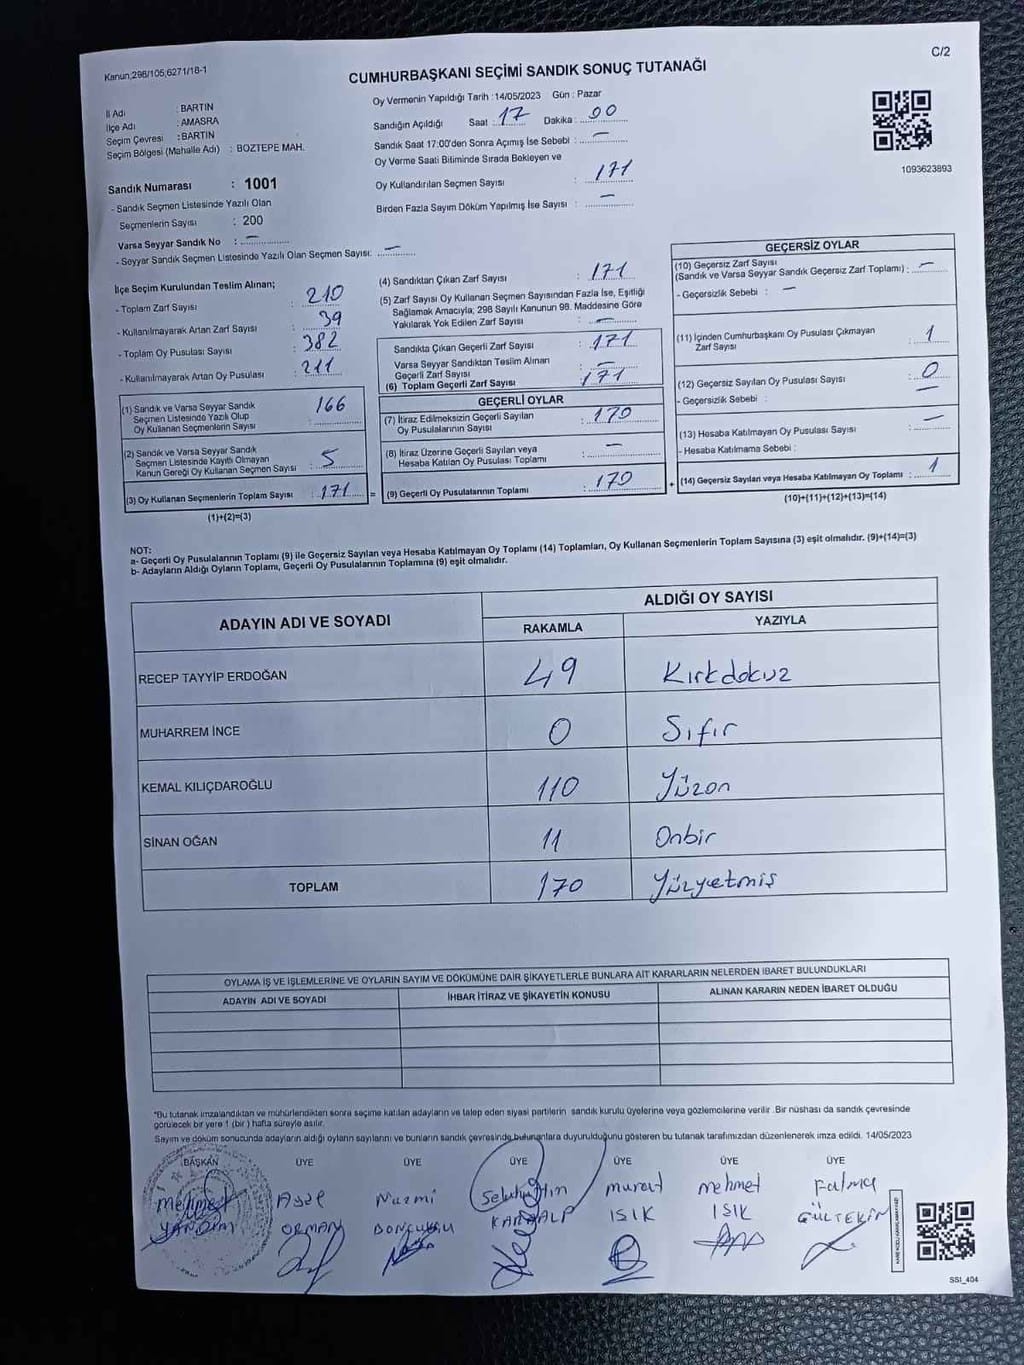 Kanun;298/105;6271/18-1
C/2
CUMHURBAŞKANI SEÇİMİ SANDIK SONUÇ TUTANAĞI
İl Adı : BARTIN
İlçe Adı : AMASRA
Seçim Çevresi : BARTIN
Seçim Bölgesi (Mahalle Adı) : BOZTEPE MAH.
Sandık Numarası : 1001
- Sandık Seçmen Listesinde Yazılı Olan
Seçmenlerin Sayısı : 200
Varsa Seyyar Sandık No : –
- Seyyar Sandık Seçmen Listesinde Yazılı Olan Seçmen Sayısı: –
Oy Vermenin Yapıldığı Tarih :14/05/2023 Gün : Pazar
Sandığın Açıldığı Saat : 17 Dakika : 00
Sandık Saat 17:00'den Sonra Açımış İse Sebebi : –
Oy Verme Saati Bitiminde Sırada Bekleyen ve
Oy Kullandırılan Seçmen Sayısı : 171
Birden Fazla Sayım Döküm Yapılmış İse Sayısı : –
1093623893
İlçe Seçim Kurulundan Teslim Alınan;
- Toplam Zarf Sayısı : 210
- Kullanılmayarak Artan Zarf Sayısı : 39
- Toplam Oy Pusulası Sayısı : 382
- Kullanılmayarak Artan Oy Pusulası : 211
(1) Sandık ve Varsa Seyyar Sandık
Seçmen Listesinde Yazılı Olup
Oy Kullanan Seçmenlerin Sayısı : 166
(2) Sandık ve Varsa Seyyar Sandık
Seçmen Listesinde Kayıtlı Olmayan
Kanun Gereği Oy Kullanan Seçmen Sayısı : 5
(3) Oy Kullanan Seçmenlerin Toplam Sayısı : 171 =
(1)+(2)=(3)
(4) Sandıktan Çıkan Zarf Sayısı : 171
(5) Zarf Sayısı Oy Kullanan Seçmen Sayısından Fazla İse, Eşitliği
Sağlamak Amacıyla; 298 Sayılı Kanunun 98. Maddesine Göre
Yakılarak Yok Edilen Zarf Sayısı : –
Sandıkta Çıkan Geçerli Zarf Sayısı : 171
Varsa Seyyar Sandıktan Teslim Alınan
Geçerli Zarf Sayısı : –
(6) Toplam Geçerli Zarf Sayısı : 171
GEÇERLİ OYLAR
(7) İtiraz Edilmeksizin Geçerli Sayılan
Oy Pusulalarının Sayısı : 170
(8) İtiraz Üzerine Geçerli Sayılan veya
Hesaba Katılan Oy Pusulası Toplamı : –
(9) Geçerli Oy Pusulalarının Toplamı : 170 +
GEÇERSİZ OYLAR
(10) Geçersiz Zarf Sayısı
(Sandık ve Varsa Seyyar Sandık Geçersiz Zarf Toplamı) : –
- Geçersizlik Sebebi : –
(11) İçinden Cumhurbaşkanı Oy Pusulası Çıkmayan
Zarf Sayısı : 1
(12) Geçersiz Sayılan Oy Pusulası Sayısı : 0
- Geçersizlik Sebebi : –
(13) Hesaba Katılmayan Oy Pusulası Sayısı : –
- Hesaba Katılmama Sebebi :
(14) Geçersiz Sayılan veya Hesaba Katılmayan Oy Toplamı : 1
(10)+(11)+(12)+(13)=(14)
NOT:
a- Geçerli Oy Pusulalarının Toplamı (9) ile Geçersiz Sayılan veya Hesaba Katılmayan Oy Toplamı (14) Toplamları, Oy Kullanan Seçmenlerin Toplam Sayısına (3) eşit olmalıdır. (9)+(14)=(3)
b- Adayların Aldığı Oyların Toplamı, Geçerli Oy Pusulalarının Toplamına (9) eşit olmalıdır.
ADAYIN ADI VE SOYADI ALDIĞI OY SAYISI
RAKAMLA YAZIYLA
RECEP TAYYİP ERDOĞAN 49 Kırkdokuz
MUHARREM İNCE 0 Sıfır
KEMAL KILIÇDAROĞLU 110 Yüzon
SİNAN OĞAN 11 Onbir
TOPLAM 170 Yüzyetmiş
OYLAMA İŞ VE İŞLEMLERİNE VE OYLARIN SAYIM VE DÖKÜMÜNE DAİR ŞİKAYETLERLE BUNLARA AİT KARARLARIN NELERDEN İBARET BULUNDUKLARI
ADAYIN ADI VE SOYADI İHBAR İTİRAZ VE ŞİKAYETİN KONUSU ALINAN KARARIN NEDEN İBARET OLDUĞU
*Bu tutanak imzalandıktan ve mühürlendikten sonra seçime katılan adayların ve talep eden siyasi partilerin sandık kurulu üyelerine veya gözlemcilerine verilir .Bir nüshası da sandık çevresinde
görülecek bir yere 1 (bir ) hafta süreyle asılır.
Sayım ve döküm sonucunda adayların aldığı oyların sayılarını ve bunların sandık çevresinde bulunanlara duyurulduğunu gösteren bu tutanak tarafımızdan düzenlenerek imza edildi. 14/05/2023
BAŞKAN ÜYE ÜYE ÜYE ÜYE ÜYE ÜYE
Aysel Nazmi Selahattin murat mehmet Fatma
YARDIM ORMAN KARAALP IŞIK IŞIK GÜLTEKİN
SSI_404